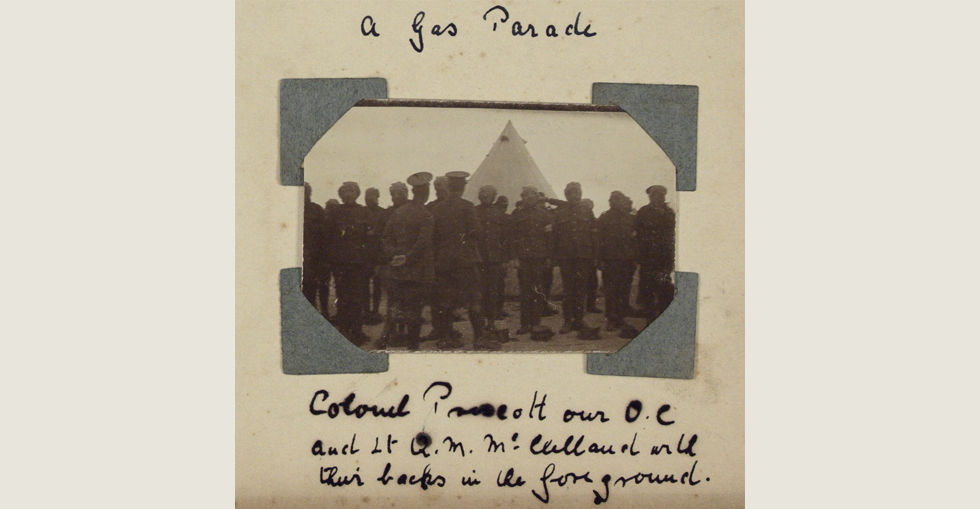 A Gas Parade
Colonel Prescott our O.C
and Lt Q.M. Mc Clelland with
their backs in the foreground.